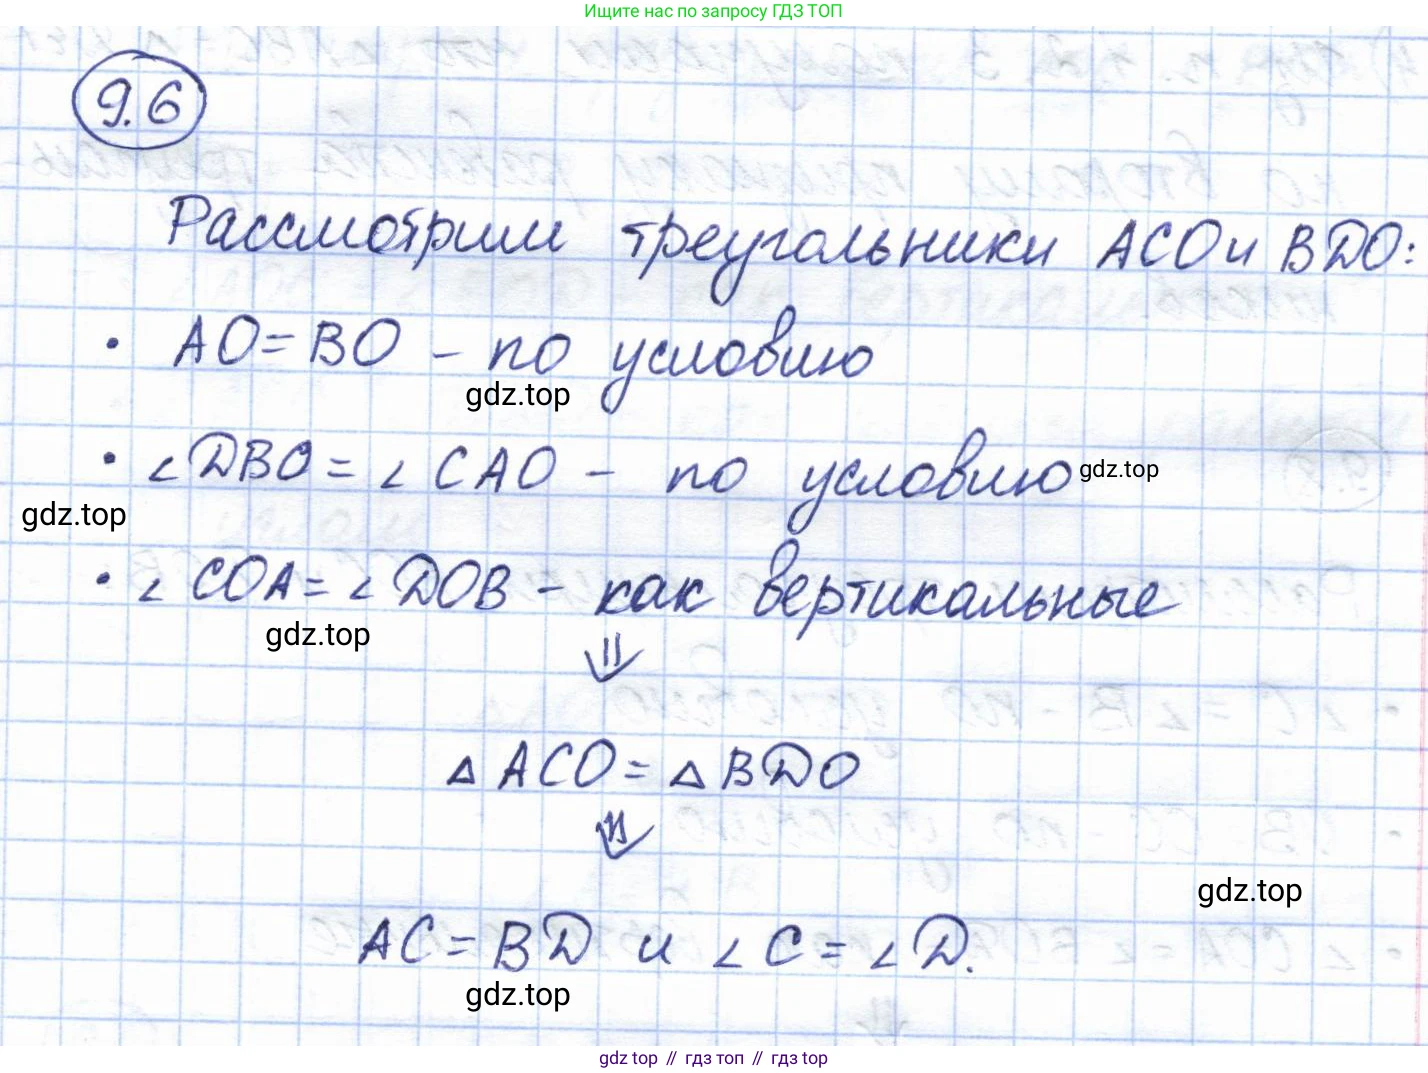 Ищите нас по запросу ГДЗ ТОП
9.6
Рассмотрим треугольники ACO и BDO:
• AO = BO – по условию
gdz.top
• ∠DBO = ∠CAO – по условию
gdz.top
gdz.top
• ∠COA = ∠DOB – как вертикальные
gdz.top
⇓
△ACO = △BDO
⇓
gdz.top
AC = BD и ∠C = ∠D.
gdz.top
gdz top // гдз топ // gdz top